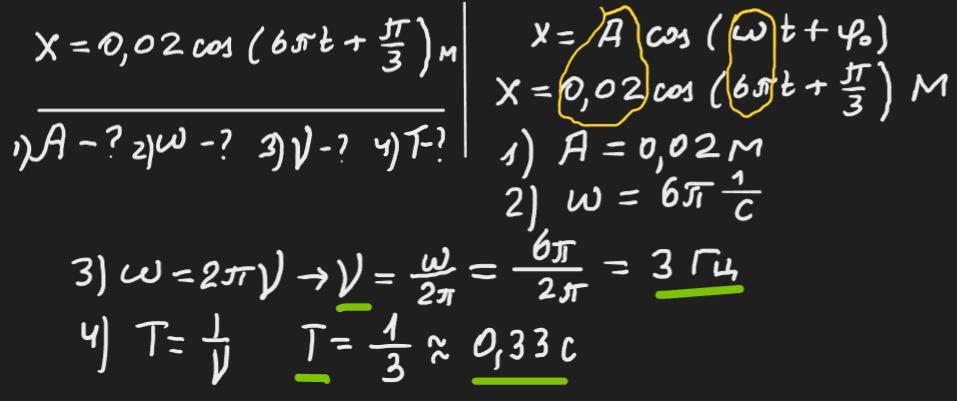 x = 0,02 cos (6πt + π/3) м
1) A - ? 2) ω - ? 3) ν - ? 4) T - ?
x = A cos (ωt + φ₀)
x = 0,02 cos (6πt + π/3) м
1) A = 0,02 м
2) ω = 6π 1/с
3) ω = 2πν → ν = ω/2π = 6π/2π = 3 Гц
4) T = 1/ν T = 1/3 ≈ 0,33 с